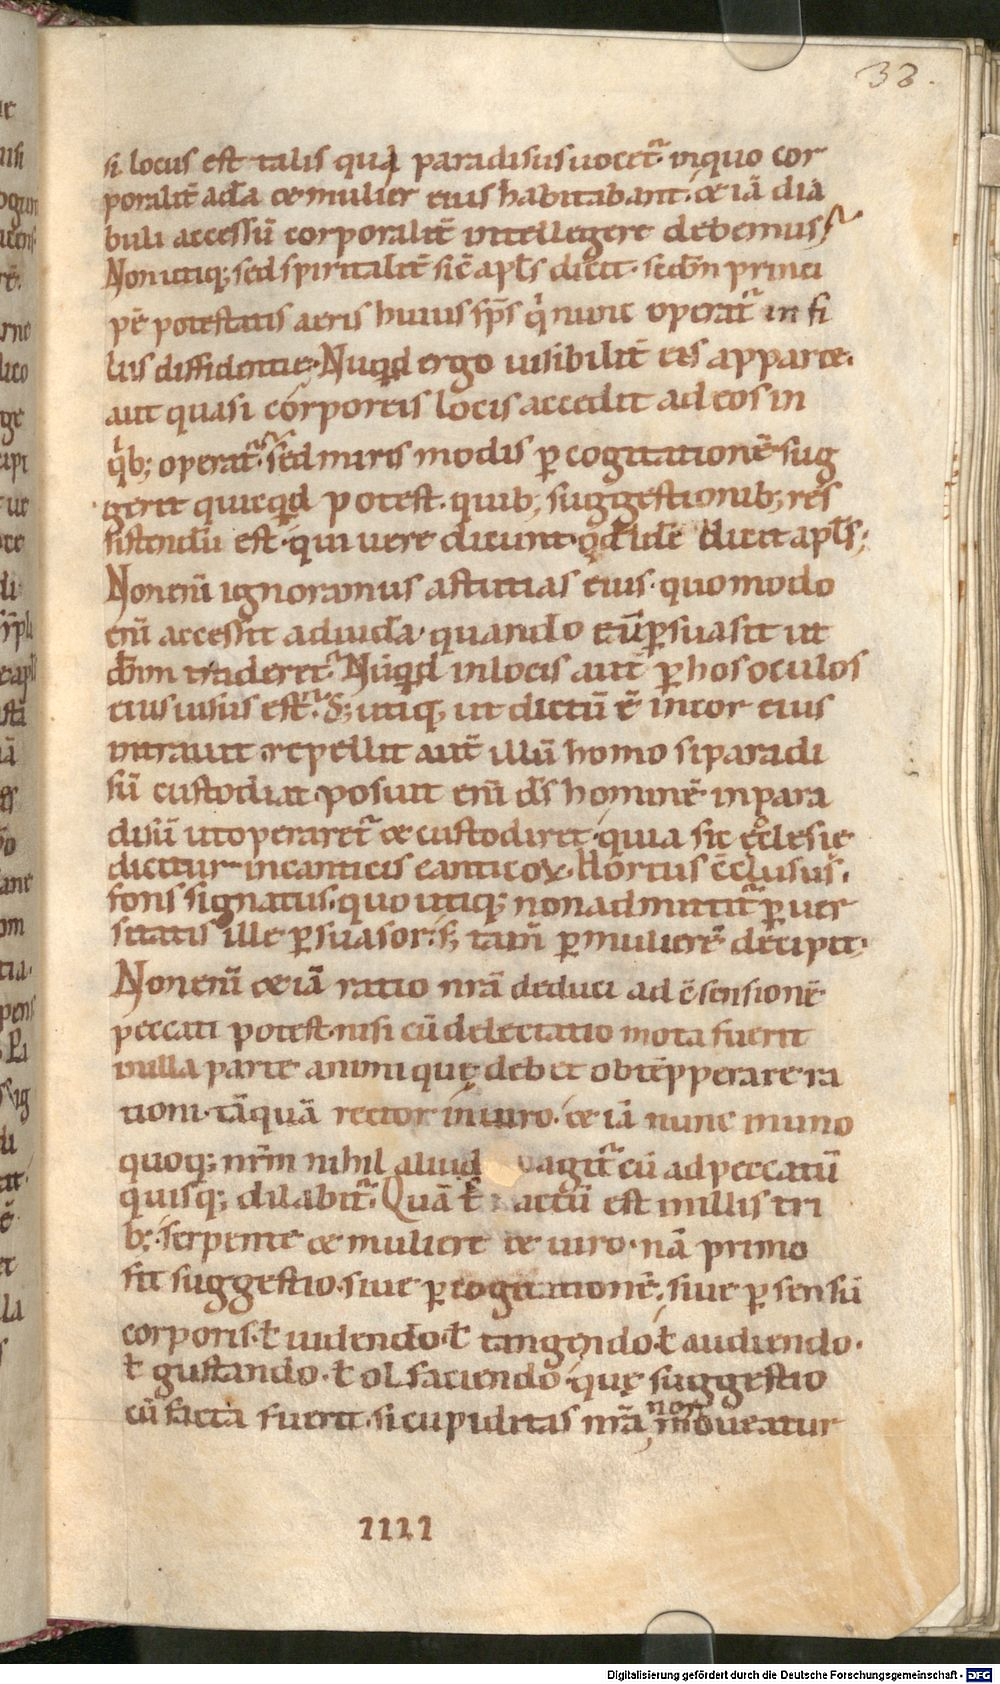 38.
si locus est talis qua paradisus uocet᷑ inquo cor
poralit̄ adā & mulier eius habitabant. & iā dia
buli accessū corporalit̄ intellegere debemus
Non utiq; sed spiritalit̄ sic̄ apl̄s dicit. secdm̄ princi
pē potestatis aeris huius sp̄s q nunc operat᷑ in fi
liis diffidentie. Nūqd ergo uisibilit̄ eis apparet.
aut quasi corporeis locis accedit ad eos in
qb; operat᷑. sed miris modis ꝑ cogitationē sug
gerit quicqd potest. quib; suggestionib; res
sistendū est. qui uere dicunt. qd idē dicit apl̄s;
Non enī ignoramus astutias eius. quomodo
enī accessit ad iudā. quando eū ꝑsuasit ut
dn̄m traderet. Nūqd in locis aut ꝑ hos oculos
eius uisus est. S; utiq; ut dictū ē in cor eius
intrauit repellit aut̄ illū homo si paradi
sū custodiat. posuit enī ds̄ hominē in para
disū ut operaret᷑ & custodiret. quia sic ęcclesie
dicitur in canticis canticoꝝ. Hortus c̄clusus.
fons signatus. quo utiq; non admittit᷑ ꝑuer
sitatis ille ꝑsuasor. S; tam̄ ꝑ mulierē decipit.
Non enī & iā ratio nrā deduci ad c̄sensionē
peccati potest. nisi cū delectatio mota fuerit
in illa parte animi que debet obtēpperare ra
tioni. tāquā rector in uiro. & iā nunc in uno
quoq; nr̄m nihil aliud agit᷑ cū ad peccatū
quisq; dilabit᷑. Quā t̄ actū est in illis tri
b; serpente & muliere & uiro. nā primo
fit suggestio. siue ꝑ cogitationē, siue ꝑ sensū
corporis. ł uidendo. ł tangendo. ł audiendo.
ł gustando. ł olfaciendo. que suggestio
cū facta fuerit. si cupiditas nrā non moueatur
IIII
Digitalisierung gefördert durch die Deutsche Forschungsgemeinschaft - DFG